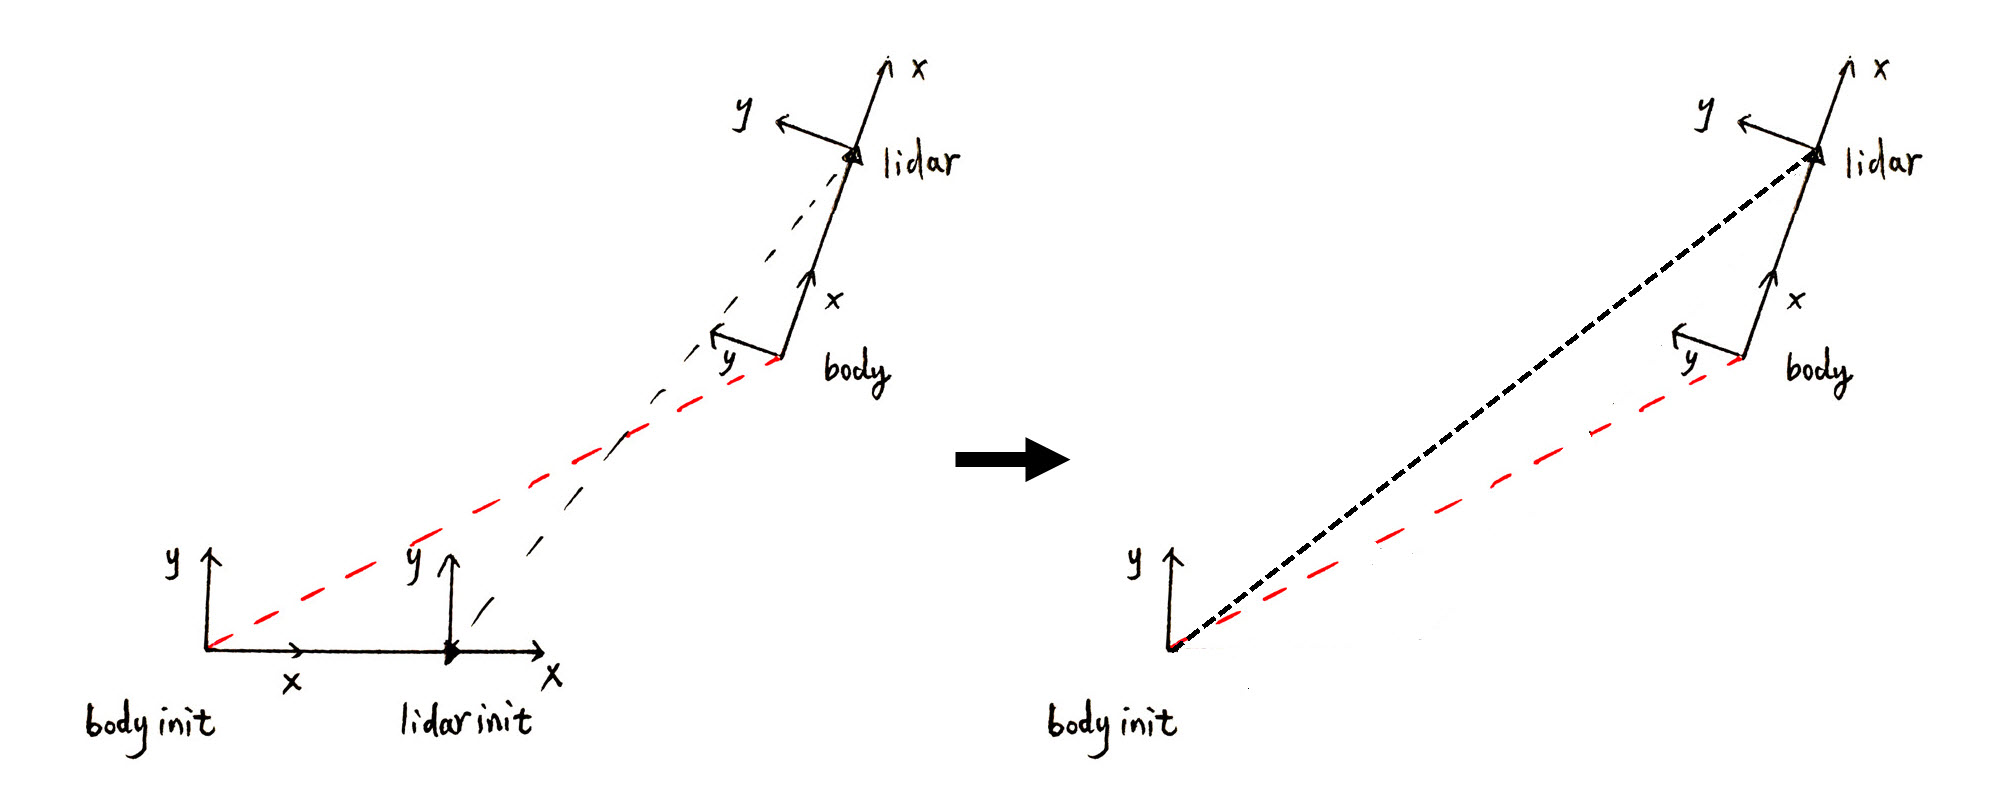 x
y
lidar
x
y
body
y
y
x
x
body init
lidar init
x
y
lidar
x
y
body
y
body init